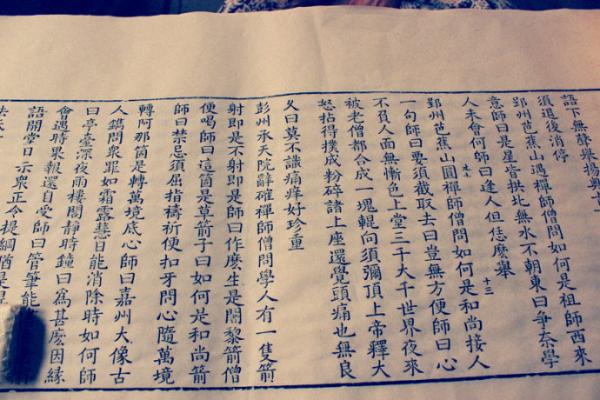 語下無聲舉揚
須退後消停
郢州芭蕉山遇禪師僧問如何是祖師西來
意師曰是星皆拱北無水不朝東曰爭奈學
人未會何師曰逢人但恁麽舉 十三
郢州芭蕉山圓禪師僧問如何是和尚接人
一句師曰要須截取去曰豈無方便師曰心
不負人面無慚色上堂三千大千世界夜來
被老僧都合成一塊輥向須彌頂上帝釋大
怒拈得撲成粉碎諸上座還覺頭痛也無良
久曰莫不識痛痒好珍重
彭州承天院辭確禪師僧問學人有一隻箭
射即是不射即是師曰作麽生是闍黎箭僧
便喝師曰這箇是草箭子曰如何是和尚箭
師曰禁忌須屈指禱祈便扣牙問心隨萬境
轉阿那箇是轉萬境底心師曰嘉州大像古
人鐫問衆罪如霜露慧日能消除時如何師
曰亭臺深夜雨樓閣靜時鐘曰爲甚麽因緣
會遇時果報還自受師曰管筆能
語開堂日示衆正令提綱猶是